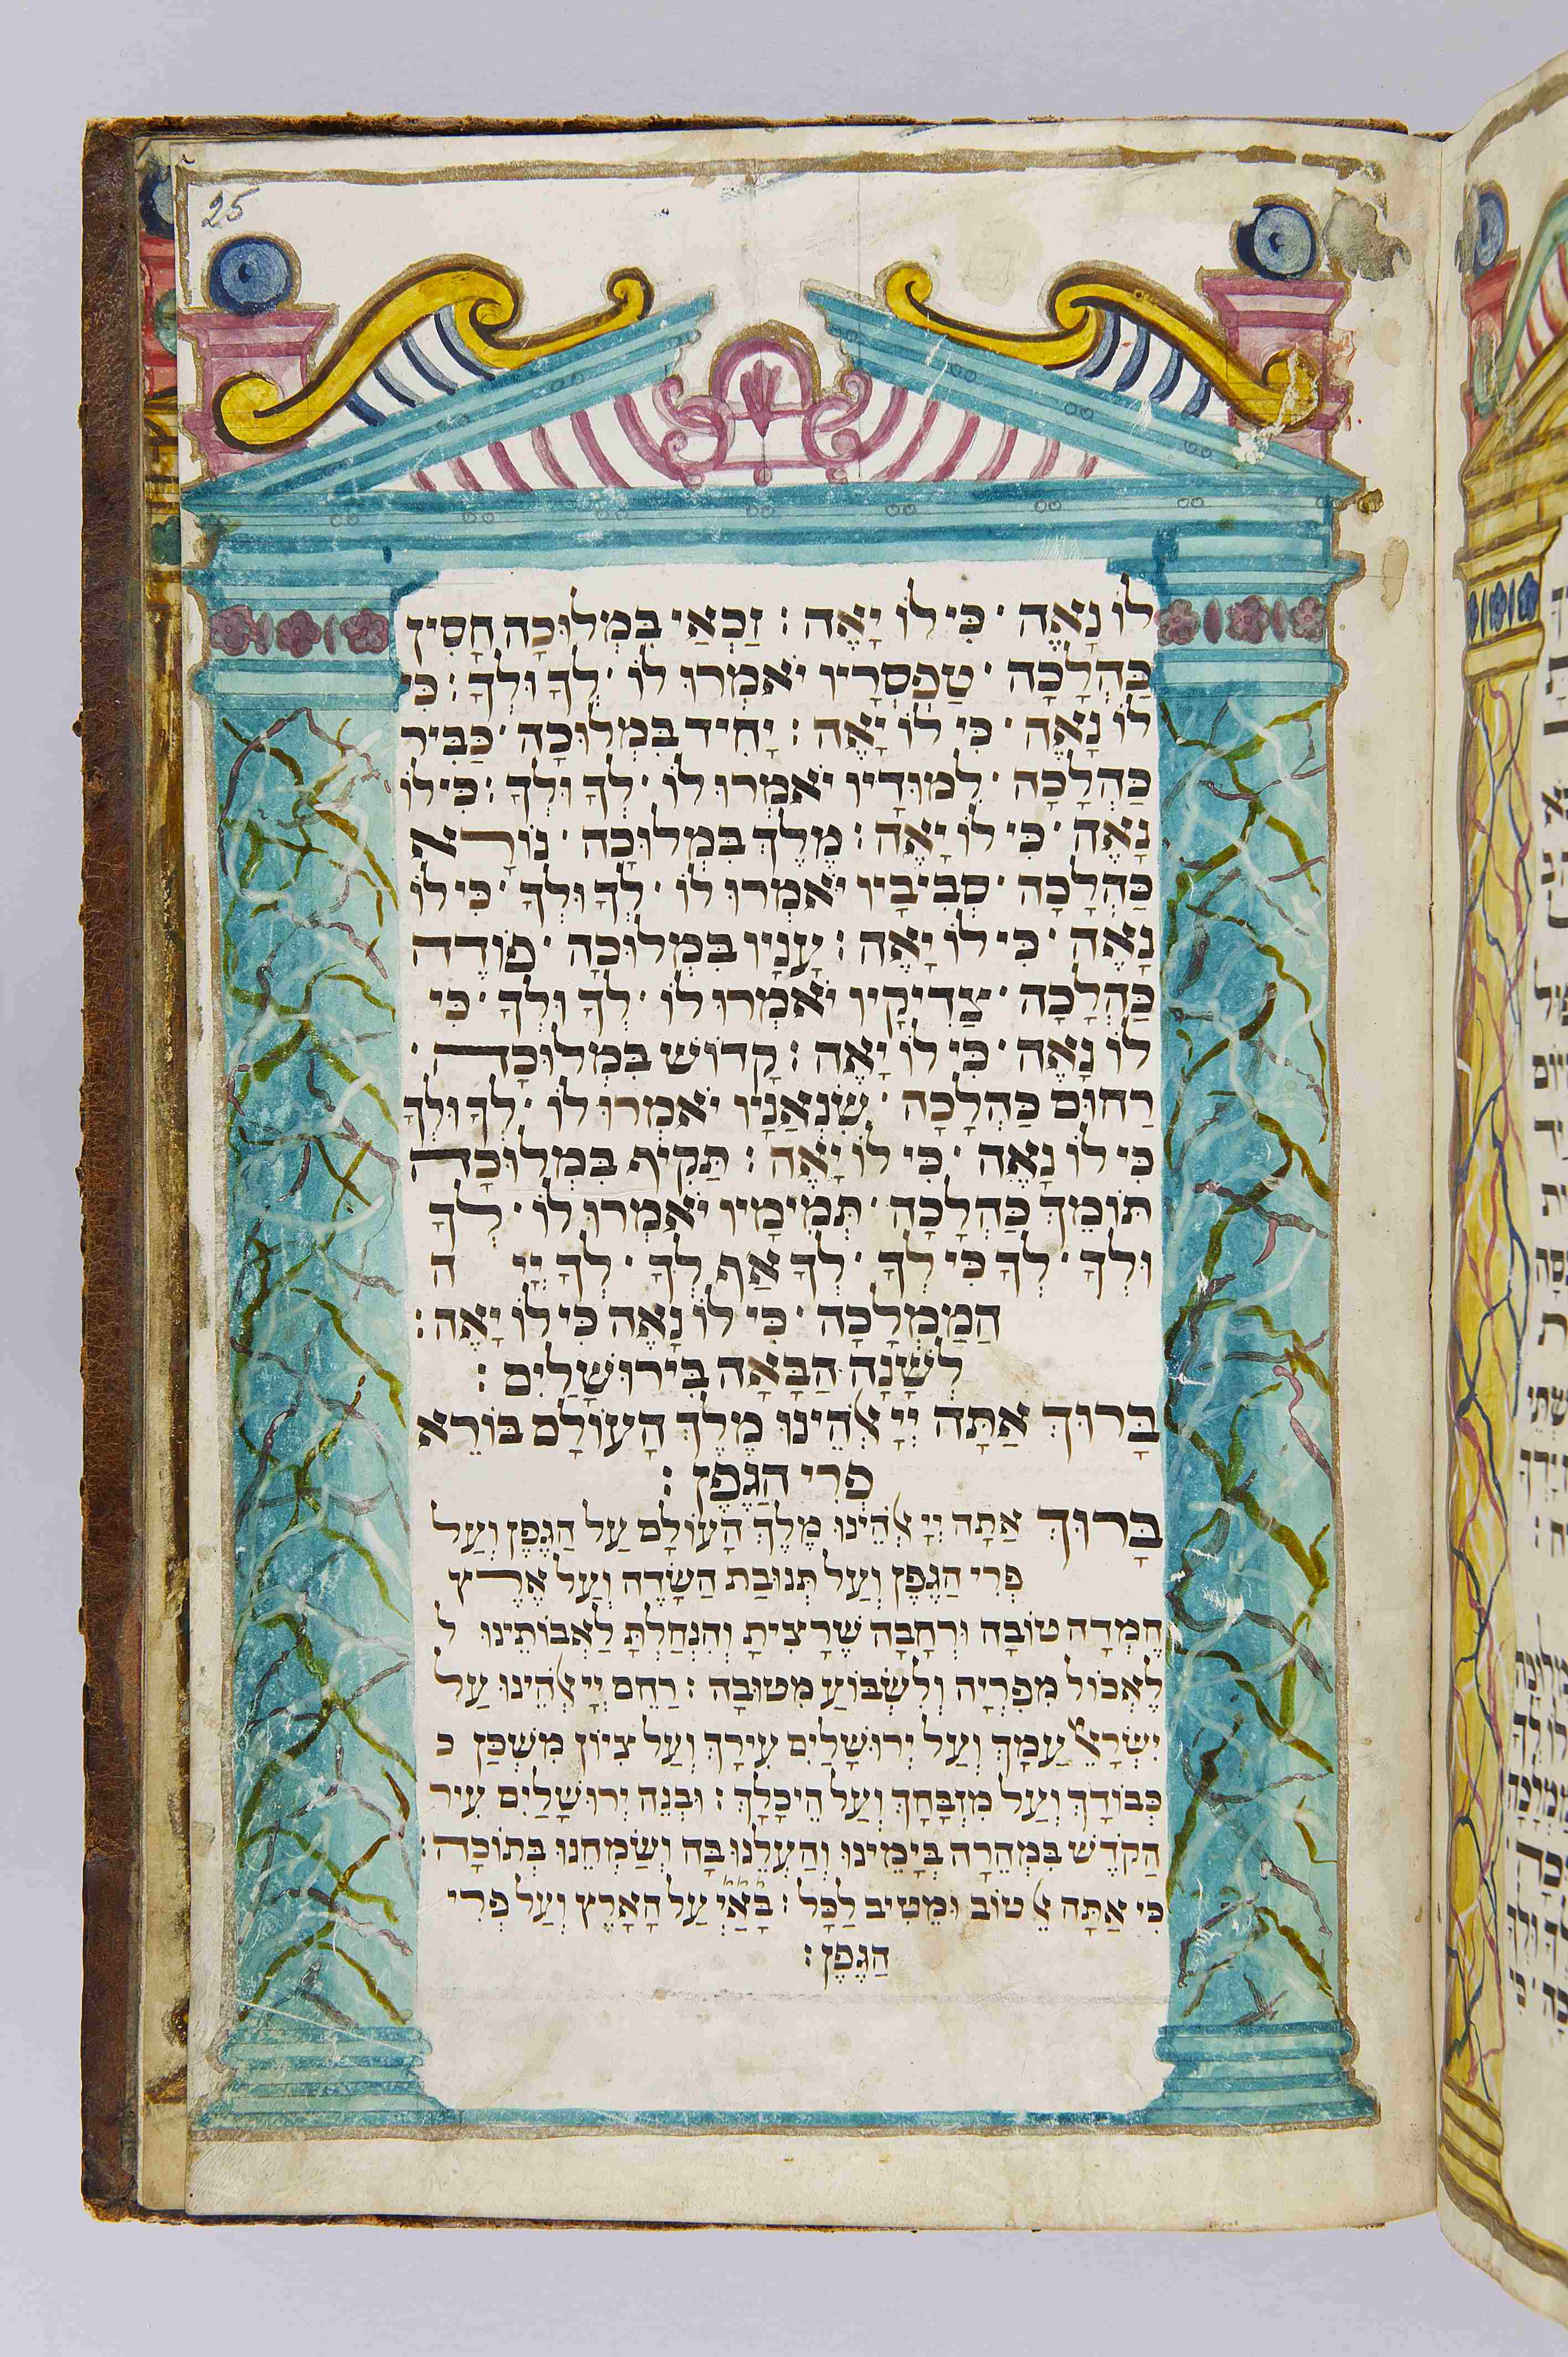 25
לוֹ נָאֶה · כִּי לוֹ יָאֶה : זַכְאַי בִּמְלוּכָה חָסִין
כַּהֲלָכָה · טַפְסְרָיו יֹאמְרוּ לוֹ · לְךָ וּלְךָ : כִּי
לוֹ נָאֶה · כִּי לוֹ יָאֶה : יָחִיד בִּמְלוּכָה · כַּבִּיר
כַּהֲלָכָה · לִמּוּדָיו יֹאמְרוּ לוֹ · לְךָ וּלְךָ : כִּי לוֹ
נָאֶה · כִּי לוֹ יָאֶה : מֶלֶךְ בִּמְלוּכָה · נוֹרָא
כַּהֲלָכָה · סְבִיבָיו יֹאמְרוּ לוֹ · לְךָ וּלְךָ · כִּי לוֹ
נָאֶה · כִּי לוֹ יָאֶה : עָנָיו בִּמְלוּכָה · פּוֹדֶה
כַּהֲלָכָה · צַדִיקָיו יֹאמְרוּ לוֹ · לְךָ וּלְךָ · כִּי
לוֹ נָאֶה · כִּי לוֹ יָאֶה : קָדוֹשׁ בִּמְלוּכָה ·
רַחוּם כַּהֲלָכָה · שִׁנְאַנָיו יֹאמְרוּ לוֹ · לְךָ וּלְךָ
כִּי לוֹ נָאֶה · כִּי לוֹ יָאֶה : תַּקִיף בִּמְלוּכָה
תּוֹמֵךְ כַּהֲלָכָה · תְּמִימָיו יֹאמְרוּ לוֹ · לְךָ
וּלְךָ · לְךָ כִּי לְךָ · לְךָ אַף לְךָ · לְךָ יְיָ ה
הַמַמְלָכָה · כִּי לוֹ נָאֶה כִּי לוֹ יָאֶה :
לְשָׁנָה הַבָּאָה בִּירוּשָׁלַיִם :
בָּרוּךְ אַתָּה יְיָ אֱלֹהֵינוּ מֶלֶךְ הָעוֹלָם בּוֹרֵא
פְּרִי הַגֶפֶן :
בָּרוּךְ אַתָּה יְיָ אֱלֹהֵינוּ מֶלֶךְ הָעוֹלָם עַל הַגֶפֶן וְעַל
פְּרִי הַגֶפֶן וְעַל תְּנוּבַת הַשָׂדֶה וְעַל אֶרֶץ
חֶמְדָה טוֹבָה וּרְחָבָה שֶׁרָצִיתָ וְהִנְחַלְתָּ לַאֲבוֹתֵינוּ ל
לֶאֱכוֹל מִפִּרְיָה וְלִשְׂבּוֹעַ מִטוּבָה : רַחֵם יְיָ אֱלֹהֵינוּ עַל
יִשְׂרָאֵל עַמָךְ וְעַל יְרוּשָׁלַיִם עִירָךְ וְעַל צִיוֹן מִשְׁכַּן כ
כְּבוֹדָךְ וְעַל מִזְבָּחָךְ וְעַל הֵיכָלָךְ : וּבְנֵה יְרוּשָׁלַיִם עִיר
הַקֹדֶשׁ בִּמְהֵרָה בְּיָמֵינוּ וְהַעֲלֵנוּ בָּהּ וְשַׂמְחֵנוּ בְּתוֹכָהּ :
כִּי אַתָּה אֵל טוֹב וּמֵטִיב לַכָּל : בָּאַ״יְ עַל הָאָרֶץ וְעַל פְּרִי
הַגֶפֶן :